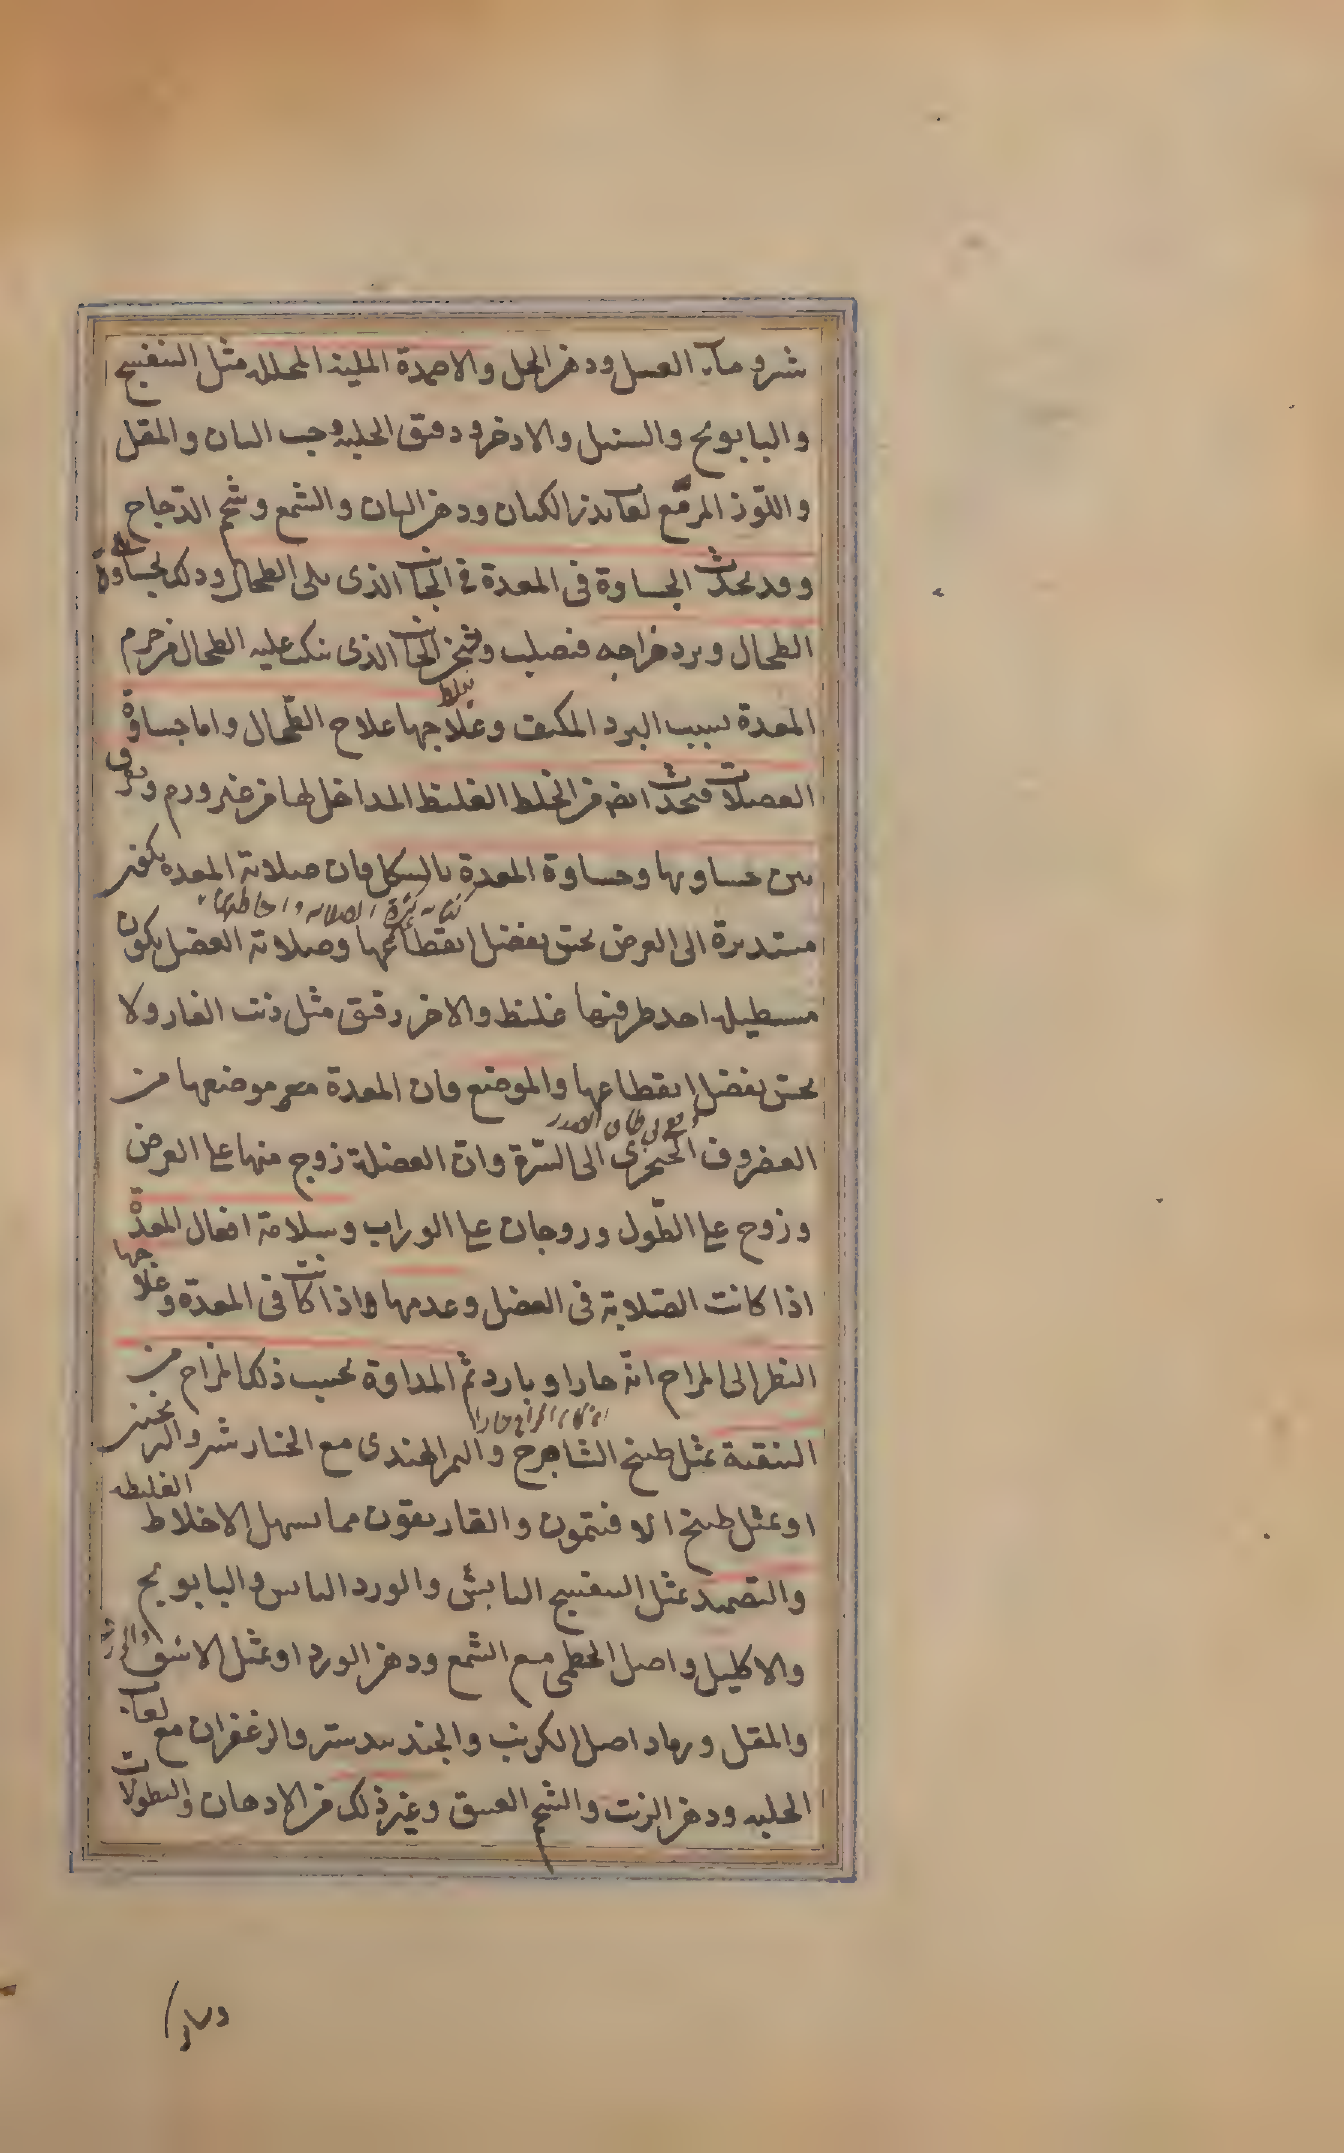 شر وماء العسل ودهن الخل والاضمدة الملينة المحللة مثل البنفسج
والبابونج والسنبل والاذخر ودقيق الحلبة وحب البان والمقل
واللوز المر مع لعاب بزر الكتان ودهن البان والشمع وشحم الدجاج
وقد يحدث الجساوة فى المعدة فى الجانب الذى يلى الطحال وذلك لجساوة
الطحال وبرد مزاجه فيصلب وثخن الجانب الذى ينكب عليه الطحال من جرم
يغلظ
المعدة بسبب البرد المكثف وعلاجها علاج الطحال واما جساوة
العضلات فيحدث ايضا من الخلط الغليظ المداخل لها من غير ورم ويفرق
بين جساوتها وجساوة المعدة بالشكل فان صلابة المعدة يكون
الصلابة واحاطتها
مستديرة الى العرض يحس بفصل انقطاعها وصلابة العضل يكون
مستطيلة احد طرفيها غليظ والاخر دقيق مثل ذنب الفار ولا
يحس بفصل انقطاعها والموضع فان المعدة مع موضعها من
الغضروف الحنجرى الى السرة وان العضلة زوج منها على العرض
وزوج على الطول وزوجان على الوراب وسلامة افعال المعدة
اذا كانت الصلابة فى العضل وعدمها واذا كانت فى المعدة وعلاجها
النظر الى المزاج انه حار او بارد ثم المداوة بحسب ذلك المزاج من
اذا كان المزاج حارا
التنقية بمثل طبيخ الشاهترج والتمر الهندى مع الخيار شنبر والترنجبين
او بمثل طبيخ الافتيمون والغاريقون مما يسهل الاخلاط الغليظة
والتضميد بمثل البنفسج اليابس والورد اليابس والبابونج
والاكليل واصل الخطمى مع الشمع ودهن الورد او بمثل الاشق
والمقل ورماد اصل الكرنب والجندبيدستر والزعفران مع لعاب
الحلبة ودهن الزيت والشحم العتيق وغير ذلك من الادهان والنطولات